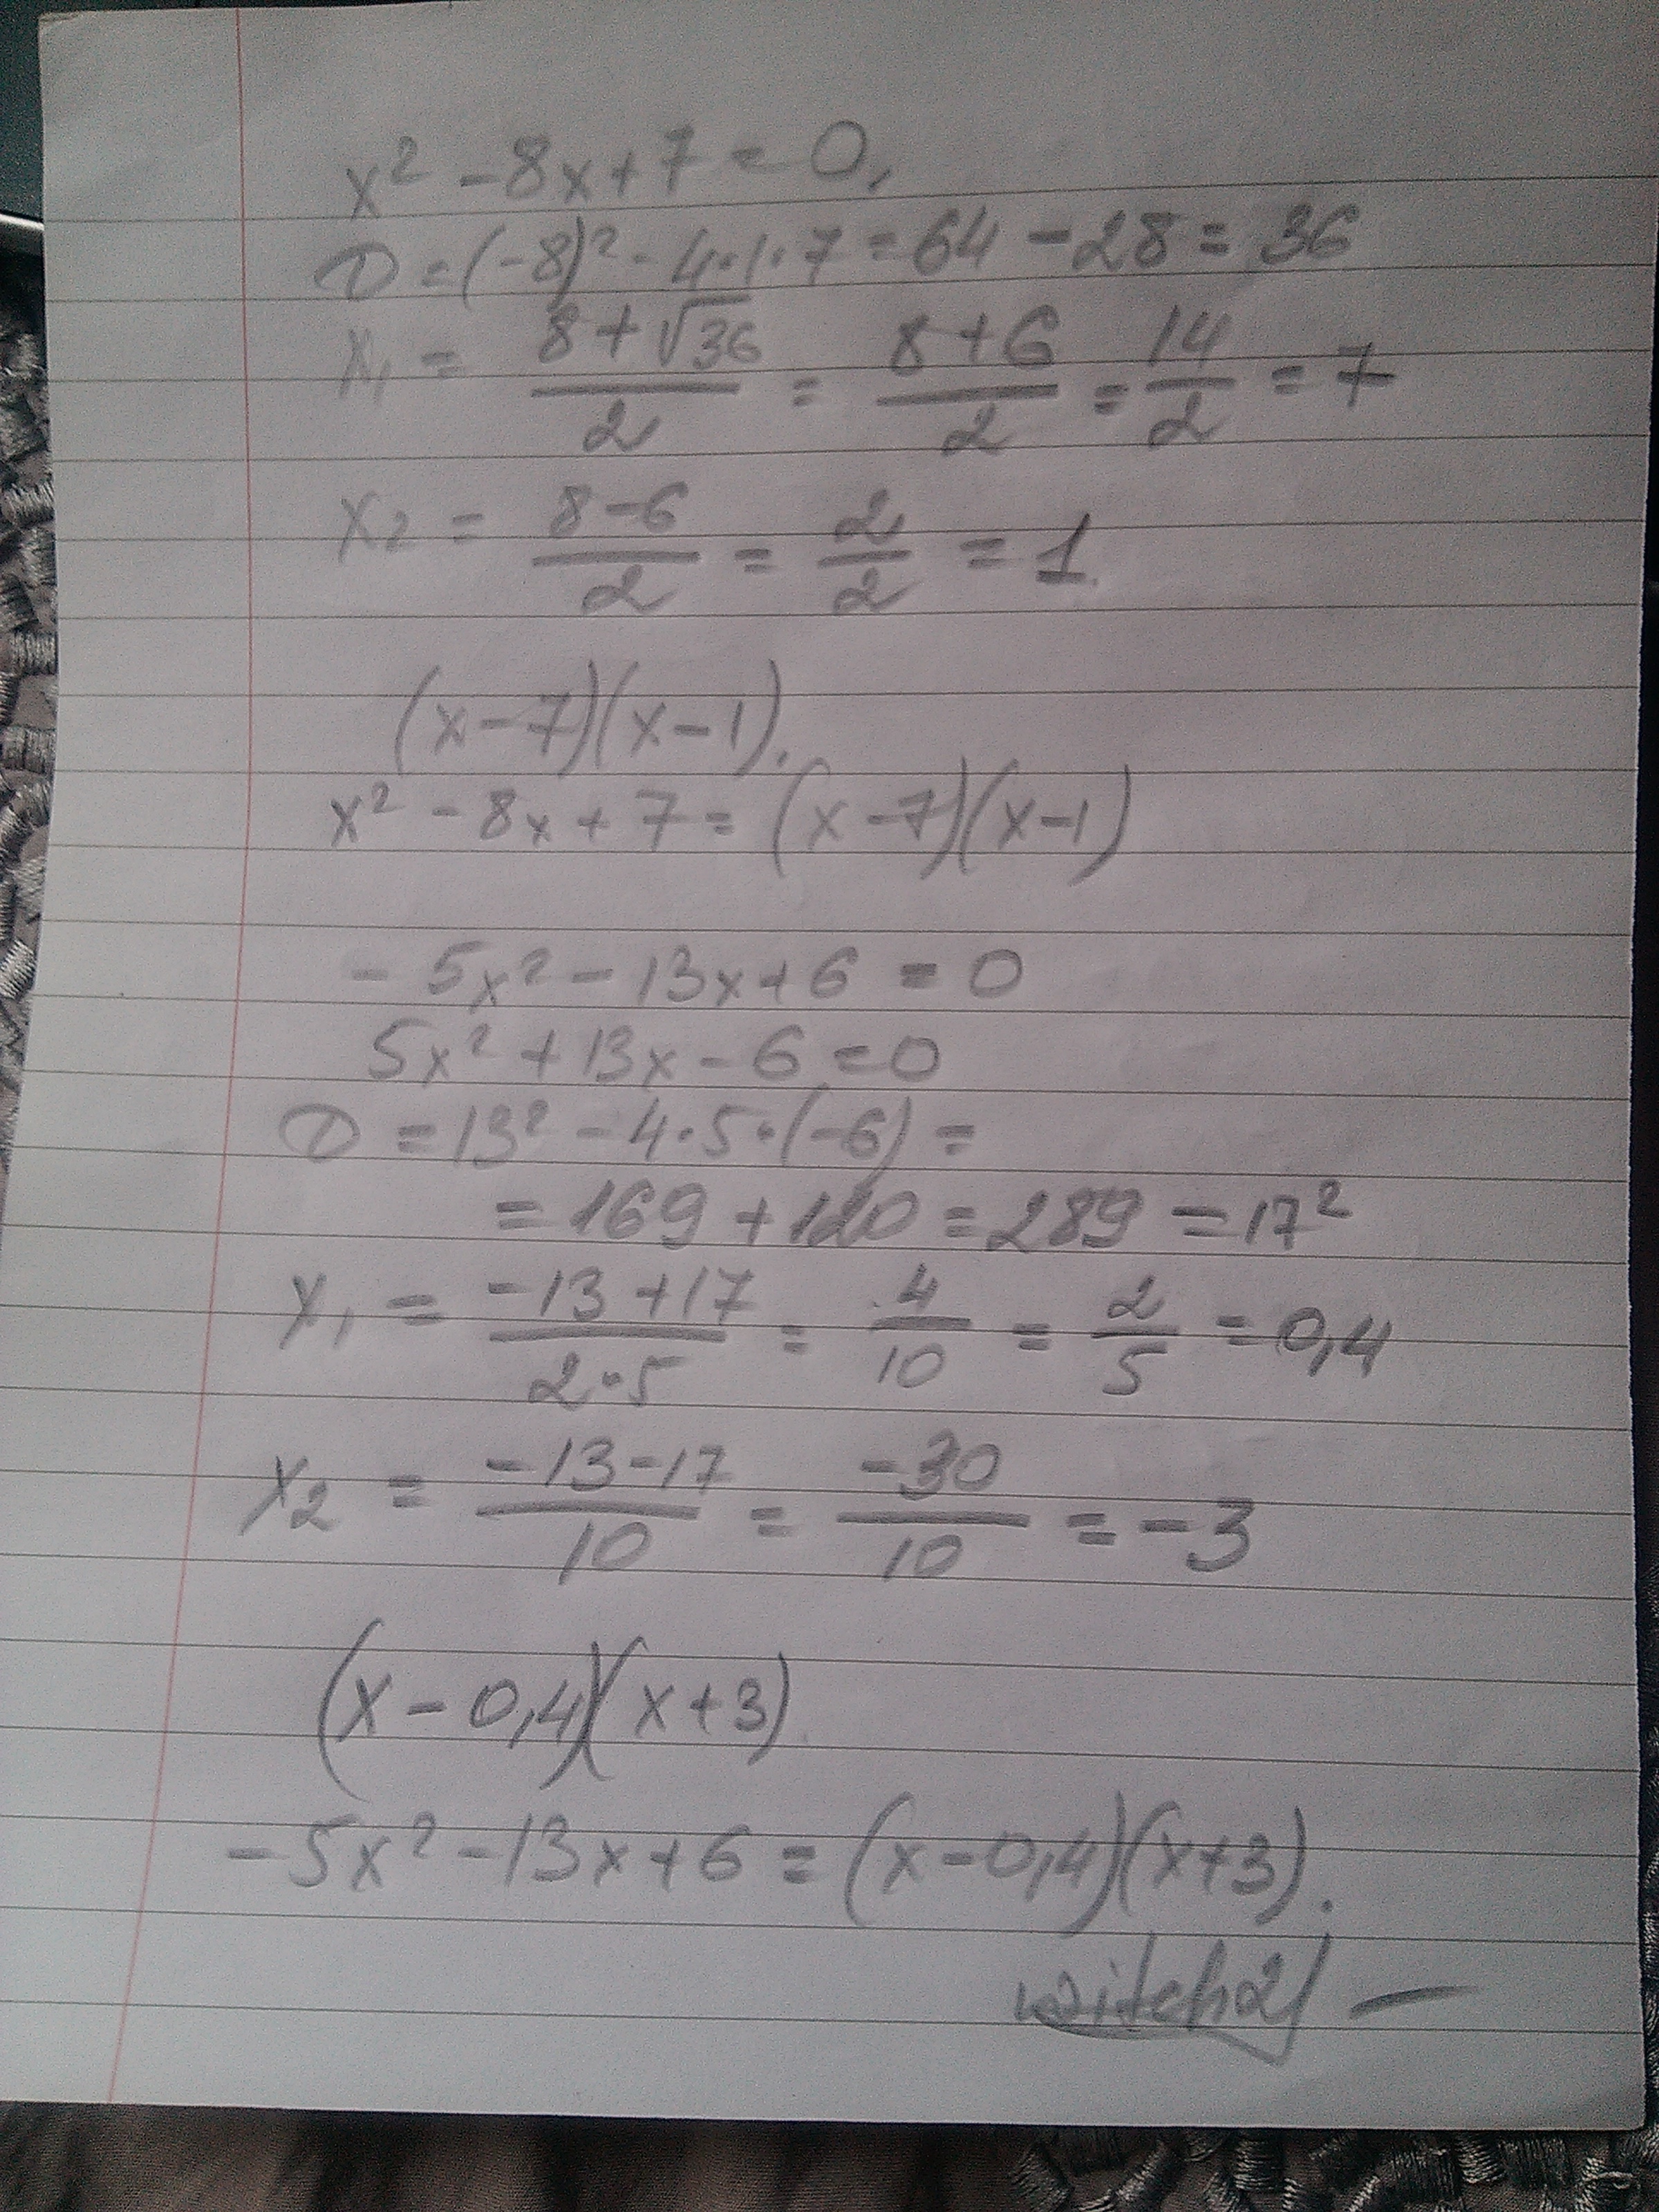 x² - 8x + 7 = 0,
D = (-8)² - 4·1·7 = 64 - 28 = 36
x₁ = (8 + √36)/2 = (8 + 6)/2 = 14/2 = 7
x₂ = (8 - 6)/2 = 2/2 = 1.
(x - 7)(x - 1).
x² - 8x + 7 = (x - 7)(x - 1)
- 5x² - 13x + 6 = 0
5x² + 13x - 6 = 0
D = 13² - 4·5·(-6) =
= 169 + 120 = 289 = 17²
x₁ = (-13 + 17)/(2·5) = 4/10 = 2/5 = 0,4
x₂ = (-13 - 17)/10 = -30/10 = -3
(x - 0,4)(x + 3)
-5x² - 13x + 6 = (x - 0,4)(x + 3).
witch21